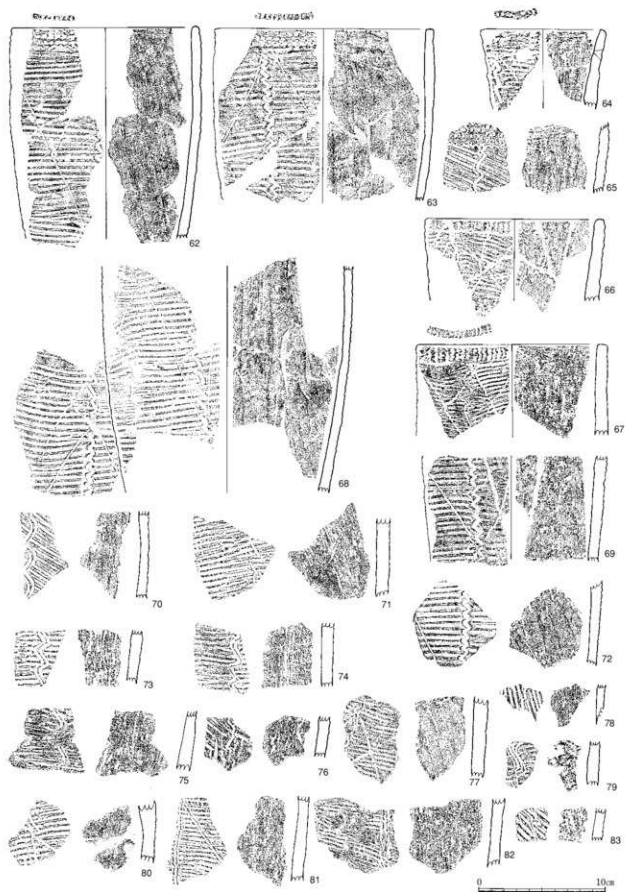 62
63
64
65
66
67
68
69
70
71
72
73
74
75
76
77
78
79
80
81
82
83
0 10㎝